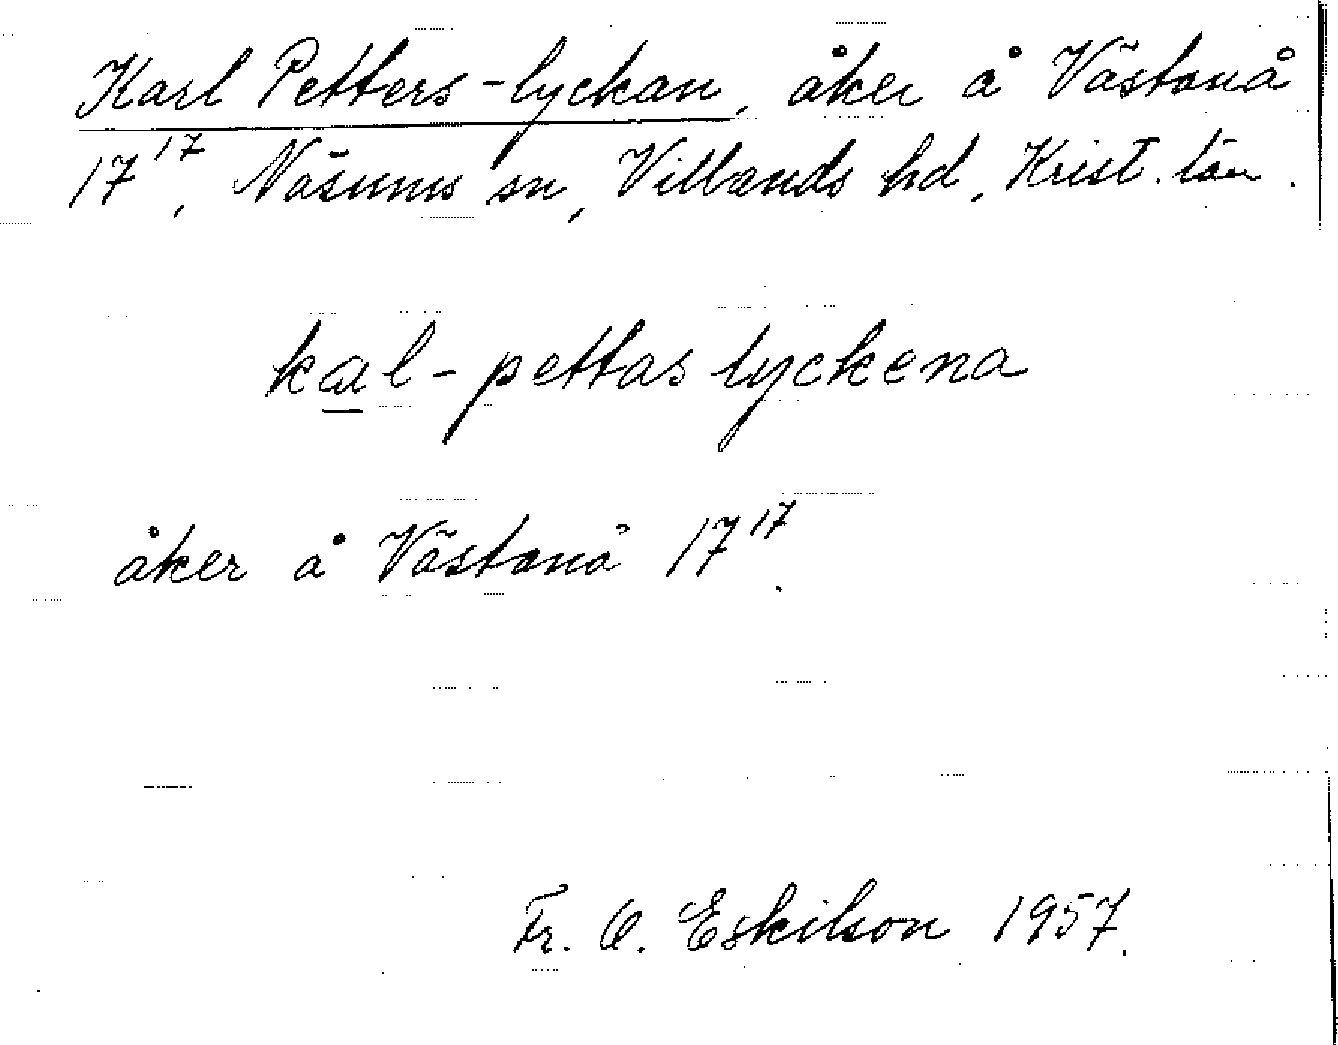 Karl Petters-lyckan, åker å Västanå
17¹⁷, Näsums sn, Villands hd, Krist. län.
kal-pettas lyckena
åker å Västanå 17¹⁷.
Fr. O. Eskilson 1957.